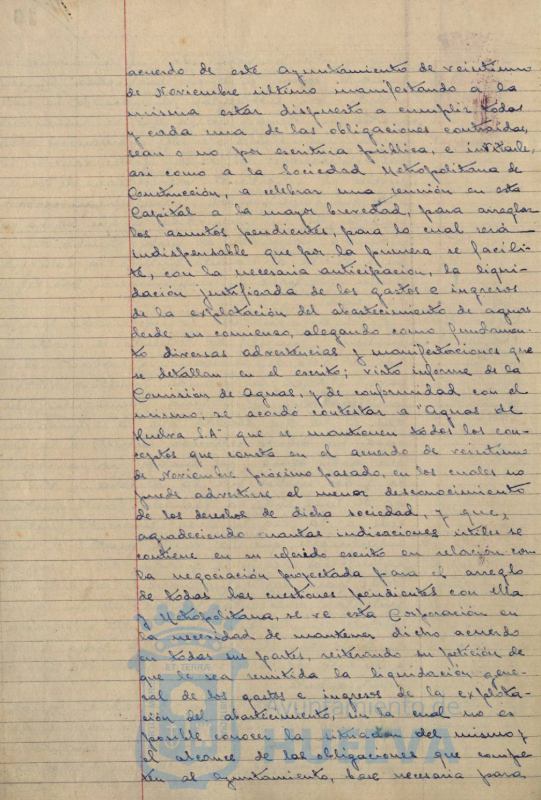 acuerdo de este Ayuntamiento de veintiuno
de Noviembre último manifestando a la
misma estar dispuesto a cumplir todas
y cada una de las obligaciones contraidas,
sean o no por escritura pública, e invitarle,
así como a la Sociedad Metropolitana de
Construcción, a celebrar una reunión en esta
Capital a la mayor brevedad, para arreglar
los asuntos pendientes, para lo cual será
indispensable que por la primera se facili-
te, con la necesaria anticipación, la liqui-
dación justificada de los gastos e ingresos
de la explotación del abastecimiento de aguas
desde su comienzo, alegando como fundamen-
to diversas advertencias y manifestaciones que
se detallan en el escrito; visto informe de la
Comisión de Aguas, y de conformidad con el
mismo, se acordó contestar a "Aguas de
Huelva S.A", que se mantienen todos los con-
ceptos que consta en el acuerdo de veintiuno
de Noviembre próximo pasado, en los cuales no
puede advertirse el menor desconocimiento
de los derechos de dicha sociedad, y que,
agradeciendo cuantas indicaciones útiles se
contiene en su referido escrito en relación con
la negociación proyectada para el arreglo
de todas las cuestiones pendientes con ella
y Metropolitana, se ve esta Corporación en
la necesidad de mantener dicho acuerdo
en todas sus partes, reiterando su petición de
que le sea remitida la liquidación gene-
ral de los gastos e ingresos de la explota-
ción del abastecimiento, sin la cual no es
posible conocer la situación del mismo y
el alcance de las obligaciones que compe-
ten al Ayuntamiento, base necesaria para
ET TERRA
Ayuntamiento de
HUELVA